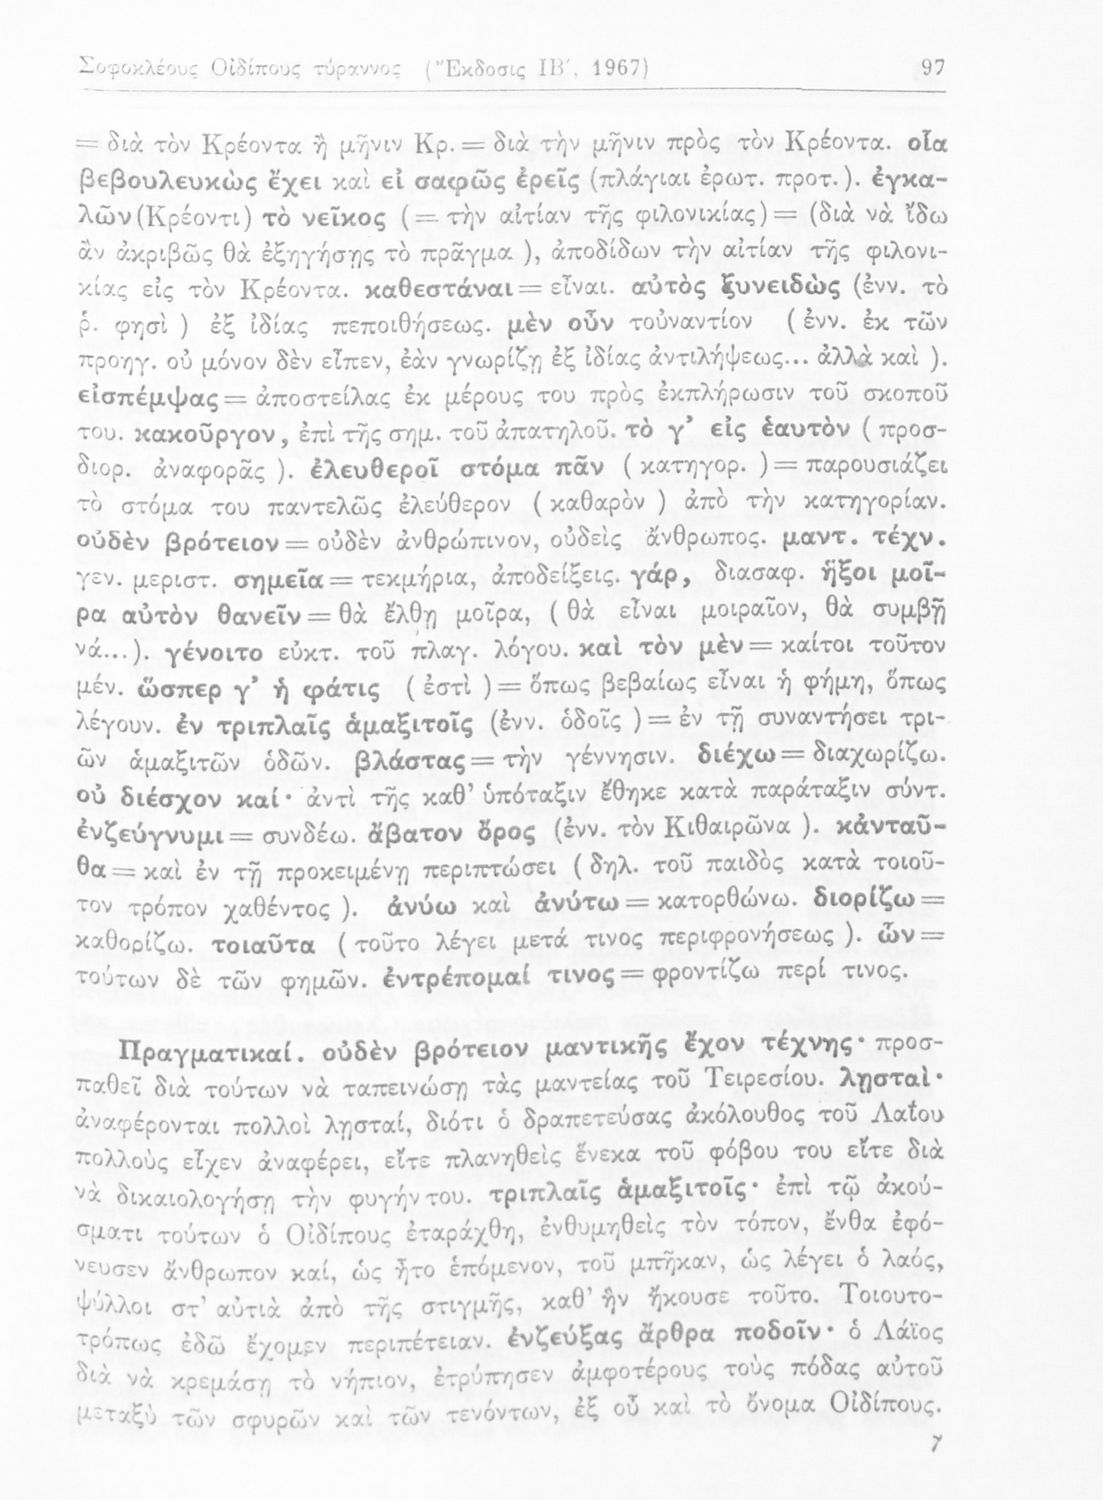 Σοφοκλέους Οἰδίπους τύραννος ( Ἔκδοσις ΙΒ΄, 1967) 97
= διὰ τὸν Κρέοντα ἢ μῆνιν Κρ. = διὰ τὴν μῆνιν πρὸς τὸν Κρέοντα. οἷα
βεβουλευκὼς ἔχει καὶ εἰ σαφῶς ἐρεῖς (πλάγιαι ἐρωτ. προτ.). ἐγκα-
λῶν (Κρέοντι) τὸ νεῖκος (= τὴν αἰτίαν τῆς φιλονικίας) = (διὰ νὰ ἴδω
ἂν ἀκριβῶς θὰ ἐξηγήσῃς τὸ πρᾶγμα ), ἀποδίδων τὴν αἰτίαν τῆς φιλονι-
κίας εἰς τὸν Κρέοντα. καθεστάναι = εἶναι. αὐτὸς ξυνειδὼς (ἐνν. τὸ
ῥ. φησὶ ) ἐξ ἰδίας πεποιθήσεως. μὲν οὖν τοὐναντίον ( ἐνν. ἐκ τῶν
προηγ. οὐ μόνον δὲν εἶπεν, ἐὰν γνωρίζῃ ἐξ ἰδίας ἀντιλήψεως... ἀλλὰ καὶ ).
εἰσπέμψας = ἀποστείλας ἐκ μέρους του πρὸς ἐκπλήρωσιν τοῦ σκοποῦ
του. κακοῦργον, ἐπὶ τῆς σημ. τοῦ ἀπατηλοῦ. τὸ γ᾿ εἰς ἑαυτὸν ( προσ-
διορ. ἀναφορᾶς ). ἐλευθεροῖ στόμα πᾶν ( κατηγορ. ) = παρουσιάζει
τὸ στόμα του παντελῶς ἐλεύθερον ( καθαρὸν ) ἀπὸ τὴν κατηγορίαν.
οὐδὲν βρότειον = οὐδὲν ἀνθρώπινον, οὐδεὶς ἄνθρωπος. μαντ. τέχν.
γεν. μεριστ. σημεῖα = τεκμήρια, ἀποδείξεις. γάρ, διασαφ. ἥξοι μοῖ-
ρα αὐτὸν θανεῖν = θὰ ἔλθῃ μοῖρα, ( θὰ εἶναι μοιραῖον, θὰ συμβῇ
νά...). γένοιτο εὐκτ. τοῦ πλαγ. λόγου. καὶ τὸν μὲν = καίτοι τοῦτον
μέν. ὥσπερ γ᾿ ἡ φάτις ( ἐστὶ ) = ὅπως βεβαίως εἶναι ἡ φήμη, ὅπως
λέγουν. ἐν τριπλαῖς ἁμαξιτοῖς (ἐνν. ὁδοῖς ) = ἐν τῇ συναντήσει τρι-
ῶν ἁμαξιτῶν ὁδῶν. βλάστας = τὴν γέννησιν. διέχω = διαχωρίζω.
οὐ διέσχον καί· ἀντὶ τῆς καθ᾿ ὑπόταξιν ἔθηκε κατὰ παράταξιν σύντ.
ἐνζεύγνυμι = συνδέω. ἄβατον ὄρος (ἐνν. τὸν Κιθαιρῶνα ). κἀνταῦ-
θα = καὶ ἐν τῇ προκειμένῃ περιπτώσει ( δηλ. τοῦ παιδὸς κατὰ τοιοῦ-
τον τρόπον χαθέντος ). ἀνύω καὶ ἀνύτω = κατορθώνω. διορίζω =
καθορίζω. τοιαῦτα ( τοῦτο λέγει μετά τινος περιφρονήσεως ). ὧν =
τούτων δὲ τῶν φημῶν. ἐντρέπομαί τινος = φροντίζω περί τινος.
Πραγματικαί. οὐδὲν βρότειον μαντικῆς ἔχον τέχνης· προσ-
παθεῖ διὰ τούτων νὰ ταπεινώσῃ τὰς μαντείας τοῦ Τειρεσίου. λῃσταὶ·
ἀναφέρονται πολλοὶ λῃσταί, διότι ὁ δραπετεύσας ἀκόλουθος τοῦ Λαΐου
πολλοὺς εἶχεν ἀναφέρει, εἴτε πλανηθεὶς ἕνεκα τοῦ φόβου του εἴτε διὰ
νὰ δικαιολογήσῃ τὴν φυγήν του. τριπλαῖς ἁμαξιτοῖς· ἐπὶ τῷ ἀκού-
σματι τούτων ὁ Οἰδίπους ἐταράχθη, ἐνθυμηθεὶς τὸν τόπον, ἔνθα ἐφό-
νευσεν ἄνθρωπον καί, ὡς ἦτο ἑπόμενον, τοῦ μπῆκαν, ὡς λέγει ὁ λαός,
ψύλλοι στ᾿ αὐτιὰ ἀπὸ τῆς στιγμῆς, καθ᾿ ἣν ἤκουσε τοῦτο. Τοιουτο-
τρόπως ἐδῶ ἔχομεν περιπέτειαν. ἐνζεύξας ἄρθρα ποδοῖν· ὁ Λάϊος
διὰ νὰ κρεμάσῃ τὸ νήπιον, ἐτρύπησεν ἀμφοτέρους τοὺς πόδας αὐτοῦ
μεταξὺ τῶν σφυρῶν καὶ τῶν τενόντων, ἐξ οὗ καὶ τὸ ὄνομα Οἰδίπους.
7